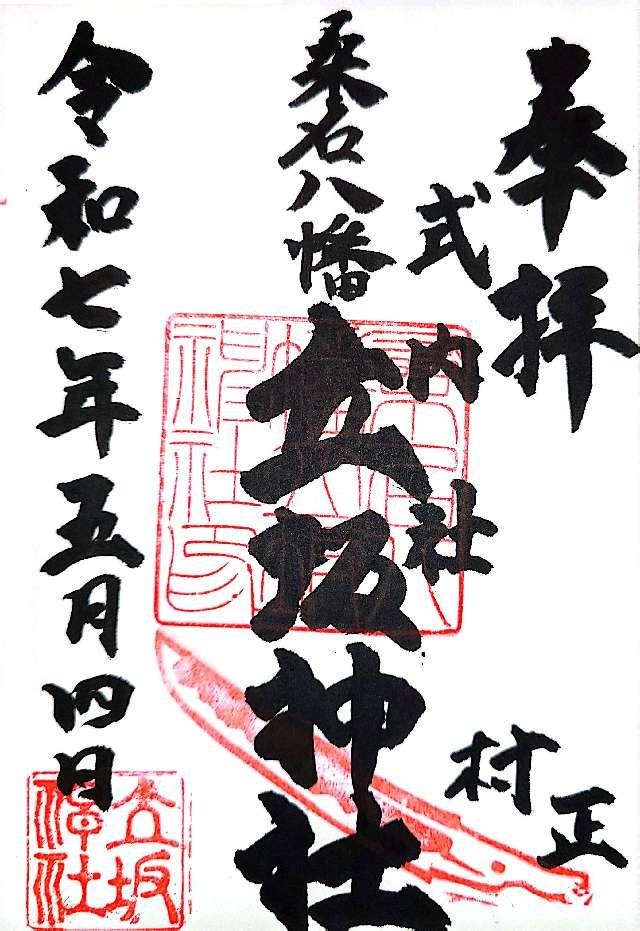 奉拝
式内社
村正
桑名八幡
立坂神社
令和七年五月四日
立坂
神社